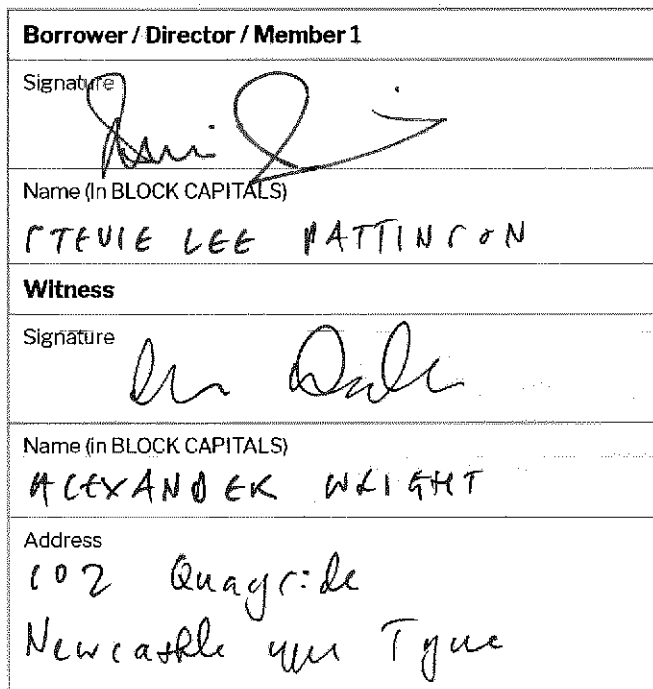 Borrower / Director / Member 1
Signature
Name (In BLOCK CAPITALS)
STEVIE LEE PATTINSON
Witness
Signature
Name (in BLOCK CAPITALS)
ALEXANDER WRIGHT
Address
102 Quayside
Newcastle upon Tyne